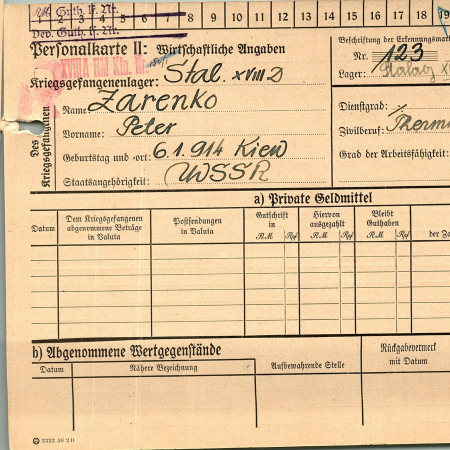 Guth. f. Nr.
2 3 4 5 6 7 8 9 10 11 12 13 14 15 16 17 18 19
Dev. Guth. f. Nr.
Personalkarte II: Wirtschaftliche Angaben
Beschriftung der Erkennungsmar
Nr. 123
Kriegsgefangenenlager: Stal. XVIII D
Lager: Stalag X
Des Kriegsgefangenen
Name: Zarenko
Vorname: Peter
Dienstgrad:
Zivilberuf:
Geburtstag und -ort: 6.1.914 Kiew
Grad der Arbeitsfähigkeit:
Staatsangehörigkeit: UdSSR
a) Private Geldmittel
Datum
Dem Kriegsgefangenen abgenommene Beträge in Valuta
Postsendungen in Valuta
Gutschrift in
RM Rpf
Hiervon ausgezahlt
RM Rpf
Bleibt Guthaben
RM Rpf
der Za
b) Abgenommene Wertgegenstände
Datum
Nähere Bezeichnung
Aufbewahrende Stelle
Rückgabevermerk mit Datum